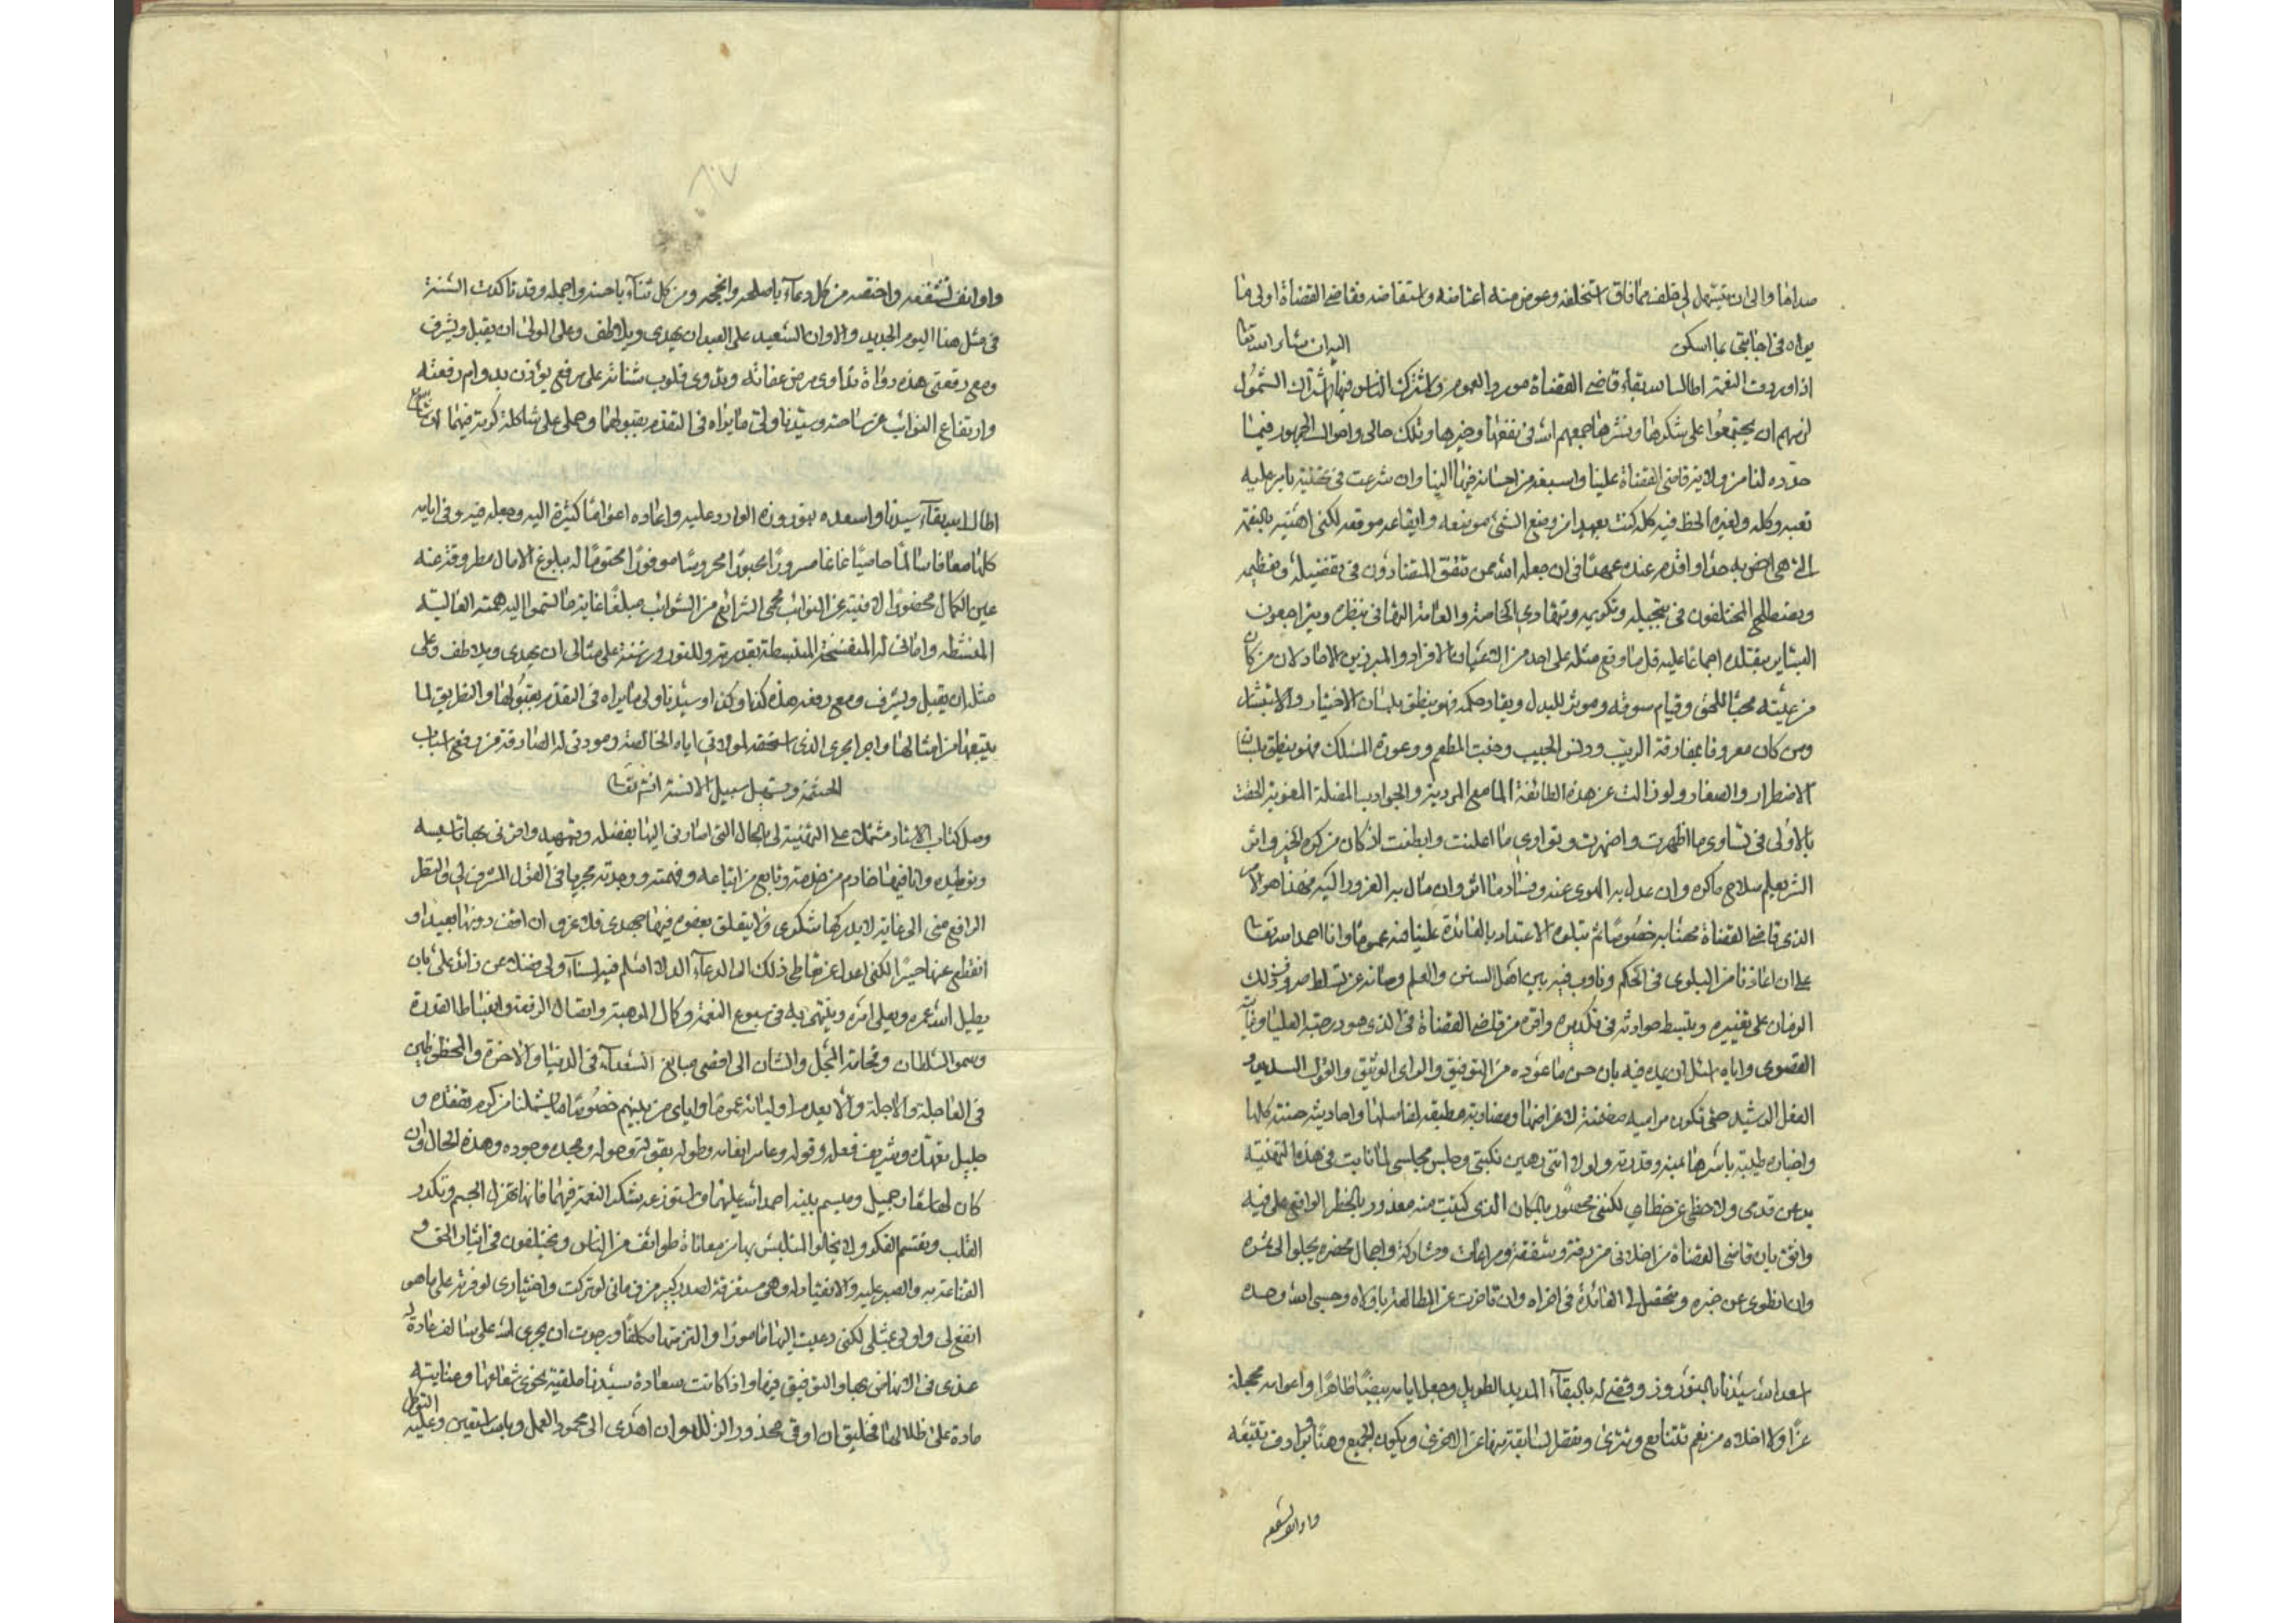 صداها والى ان يتسهل لي خلف مما فاق استخلفه وعوض منه اعتاضه واستقاضه فقاضي القضاة اولى ما
يراه في اجابتي بما اسكن اليه ان شاء الله تعالى
اذا وردت النعمة اطال الله بقاء قاضي القضاة مورد العموم واشترك الناس فيها اشتراك الشمول
لزمهم ان يجتمعوا على شكرها ونشرها جمعهم الله في نفعها وخيرها وتلك حالي واحوال الجمهور فيما
جدده لنا من ولاية قاضي القضاة علينا واسبغه من احسانه فيها الينا وان شرعت في تحليته بامر عليه
تعبه وكله ولغيره الحظ فيه كله كنت بعيدا من وضع الشئ موضعه وايقاعه موقعه لكني اهنئه بالنعمة
التي هي اخص به جدا واقدم عنده عهدا في ان جعله الله ممن تتفق المتضادون في تفضيله وتعظيمه
ويصطلح المختلفون في تبجيله وتكريمه وتتهادى الخاصة والعامة التهاني بنظره ويتراجعون
البشاير بتقلده اجماعا عليه قل ما وقع مثله على احد من الاعيان الافراد والمبرزين الاحاد لان من كان
من رعيته محبا للحق وقيام سوقه وموثرا للعدل ونفاذ حكمه فهو ينطق بلسان الاختيار والاستبشار
ومن كان معروفا بمفارقة الريب ودنس الجيب وخبث المطعم ووعورة المسلك فهو ينطق بلسان
الاضطرار والصغار ولو زالت عن هذه الطائفة المطامع المردية والجواذب المضلة المغوية لحقت
بالاولى في تساوي ما اظهرت واضمرت وتوازي ما اعلنت وابطنت اذ كان من كره الخير واثر
الشر يعلم صلاح ما كره وان عدل به الهوى عنه وفساد ما اثر وان مال به الغرور اليه فهذا هو الامر
الذي قاضي القضاة مهنأ به خصوصا ثم يتلوه الاعتداد بالفائدة علينا منه عموما وانا احمد الله تعالى
على ان اعاذنا من البلوى في الحكم وقارب فيه بين اهل السنن والعلم وصانه عن تسلط صروف ذلك
الزمان على تغييره وتبسط حوادثه في تكديره واقره من قاضي القضاة في الذي هو درجته العليا وغايته
القصوى واياه اسئل ان يمده فيه بان حسن ما عوده من التوفيق والراي الوثيق والقول السديد و
الفعل الرشيد حتى تكون مراميه مصيبة لاغراضها ومضاربه مطبقة لمفاصلها واحاديثه حسنة كلها
واخباره طيبة باسرها بمنه وقدرته ولولا انني رهين نكبتي وحلس مجلسي لما نابت في هذه التهنئة
يد عن قدمي ولا حظي عن خطاي لكنني محصور بالمكان الذي كتبت منه معذور بالحظر الواقع علي فيه
واثق بان قاضي القضاة من اخلاقه في رقة وشفقة ومراعات ومشاركة واجمال محضر يجلوا لي غره
وان انطوى عن خبره ويتحصل لي الفائدة في اخراه وان تاخرت عن المطالعة باولاه وحسبي الله وحده
اسعد الله سيدنا بالنوروز وقضى له بالبقاء المديد الطويل وجعل ايامه بيضا ظاهرا واعوامه محجلة
غرا ولا اخلاه من نعم تتتابع وتترى وتفضل السابقة منها عن الاخرى ويكون لجميع وهنا يرادف بتتبعه
واوانف تشفعه
واوانف تشفعه واختصه من كل دعاء باصلحه وانجحه ومن كل ثناء باحسنه واجمله وقد تاكدت السنة
في مثل هذا اليوم الجديد والاوان السعيد على العبد ان يهدي ويلاطف وعلى المولى ان يقبل ويشرف
ومع رقعتي هذه دواة تداوى مرض عفاته وتدوى قلوب شناته على مرفع يؤذن بدوام رفعته
وارتفاع النوائب عن ساحته وسيدنا ولي ما يراه في التقدم بقبولهما وحملي على شاكلة كرمه فيهما ان شاء الله تعالى
اطال الله بقاء سيدنا واسعده بنوروزه الوارد عليه واعاده اعواما كثيرة اليه وجعله فيه وفي ايامه
كلها معافا سالما حاميا غانما مسرورا محبورا محروسا موفورا محتوما له ببلوغ الامال مطروفة عنه
عين الكمال محضور الافنية عن النوائب محمي الشرائع من الشوائب مبلغا غاية ما تسموا اليه همته العالية
المنشطه وامانيه المنفسخة المنبسطة بقدرته وللنوروز سنة على مثالي ان يهدي ويلاطف وعلى
مثله ان يقبل ويشرف ومع رقعتي هذه كذا وكذا وسيدنا ولي ما يراه في التقدم بقبولها والتطريق لما
يتبعها من امثالها واجرا مجرى الذي استحقه لموالاتي اياه الخالصة ومودتي له الصادقة من رفع اسباب
الحشمة وتسهيل سبيل الانسة ان شاء الله تعالى
وصل كتاب الاستاد مشتملا على التهنئة لي بالحال التي اشارني اليها بفضله وتمهيده واقرني بها تاسيسه
وتوطيده وانا فيها خادم من خدمته وتابع من اتباعه وفهمته ووجدته مجريا في القول المشرف لي والفعل
الرافع مني الى غاية لا يدركها شكري ولا يتعلق بعضوم فيها جهدي فلا غرو ان اقف دونها بعيدا و
انقطع عنها حسيرا لكني اعدل عن تعاطي ذلك الى الدعاء الذي لا اسلم فيه لسناء ولي ضمان عن زائد علي بان
يطيل الله عمره ويعلي امره وينتهي به في سبوع النعمة وكمال الموهبة واتصال الرفعة وانبساط القدرة
وسمو السلطان وفخامة المحل والشان الى اقصى مبالغ السعداء في الدنيا والاخرة والمحظوظين
في العاجلة والاجلة والا يعدم اوليائه عموما واياي من بينهم خصوصا ما يشملنا من كرم تفقده و
جليل تعهده وشريف فعله وقوله وعامر انعامه وطوله بقوته وحوله ومجده وجوده وهذه الحال وان
كان لها ملقا جميل وميسم بنبيه احمد الله عليهما واستوزعه شكر النعمة فيهما فانها تهزل الجسم وتكدر
القلب وتقسم الفكر ولا يخلوا المتلبس بها من معاناة طوائف من الناس ويختلفون في ايثار الحق و
القناعة به والصبر عليه والانقياد له وهي مستغرقة لصدر كبير من زماني لو تركت واختياري لوفرته على ما هو
انفع لي واولى بمثلي لكني دعيت اليها مامورا والتزمتها مكلفا ورجوت ان يجري الله على سالف عادته
عندي في الانهاض بها والتوفيق فيها واذا كانت سعادة سيدنا ملقية نحوي شعاعها وعنايته
مادة علي ظلالها فخليق ان اوقى محذور الزلل وان اهدى الى محمود العمل وبالله استعين وعليه التوكل